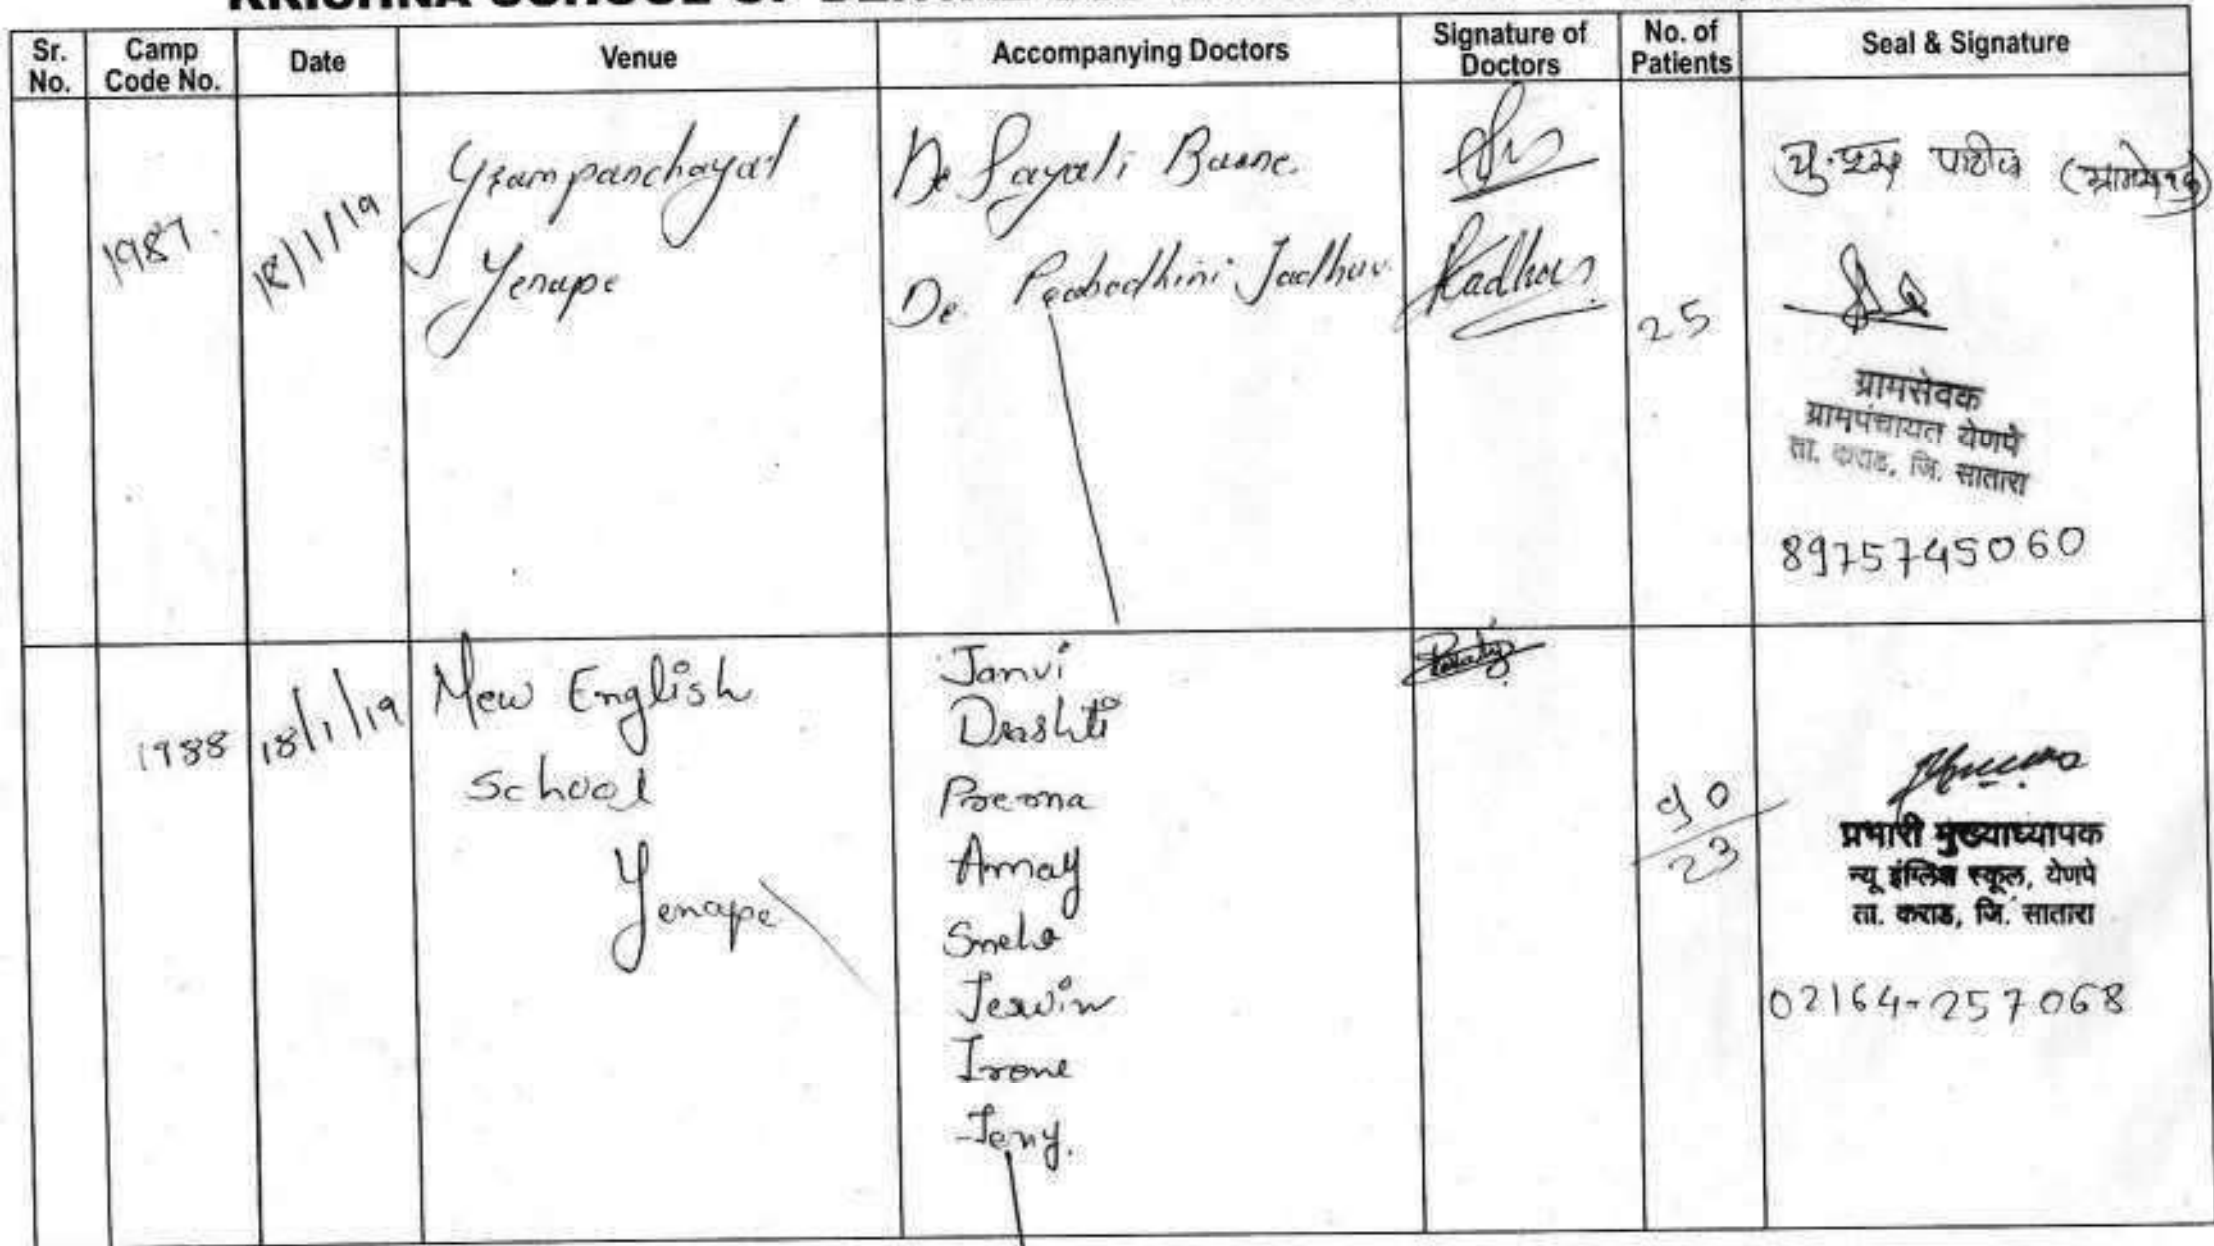 KRISHNA SCHOOL OF
Sr. No. Camp Code No. Date Venue Accompanying Doctors Signature of Doctors No. of Patients Seal & Signature
1987. 18/1/19 Grampanchayat Yenape
Dr Sayali
Dr. Jadhav
25
पाटील
ग्रामसेवक
ग्रामपंचायत येणपे
ता. कराड, जि. सातारा
8975745060
1988 18/1/19 New English School Yenape
Janvi
Drashti
Prerna
Amay
Sneha
Jerwin
Irene
Jeny.
90
23
प्रभारी मुख्याध्यापक
न्यू इंग्लिश स्कूल, येणपे
ता. कराड, जि. सातारा
02164-257068